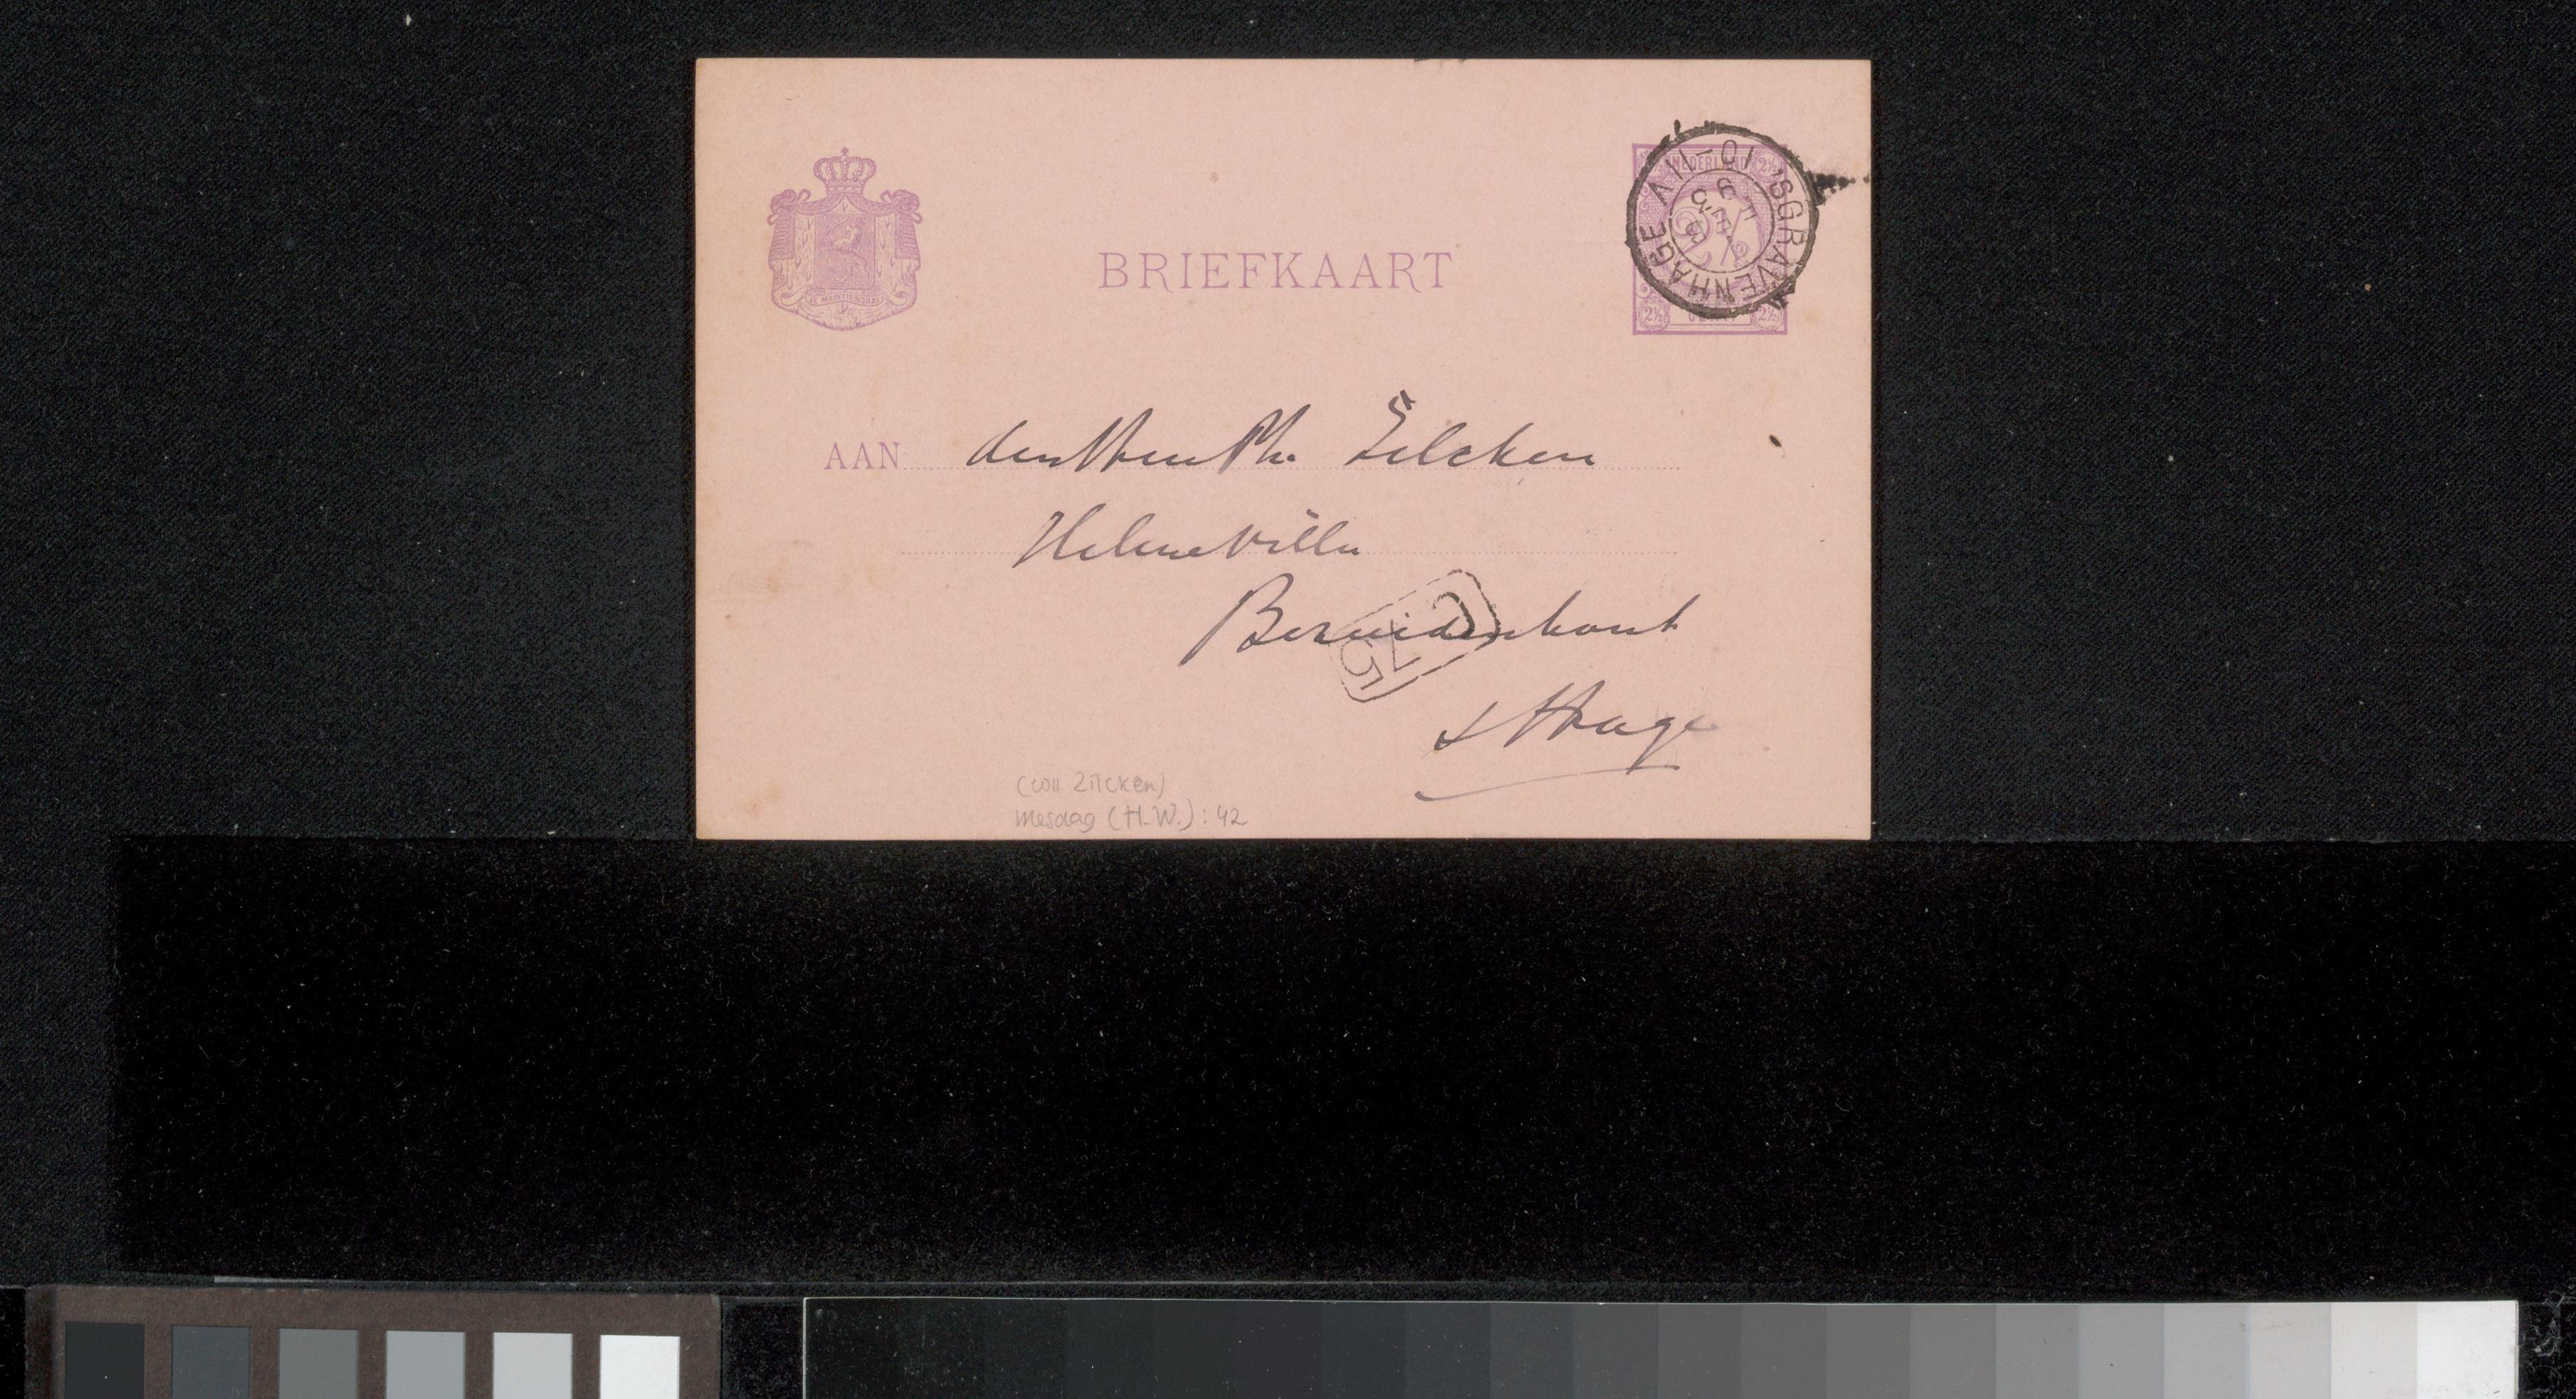 JE MAINTIENDRAI
BRIEFKAART
NEDERLAND
2½
2½
CENT
2½
'SGRAVENHAGE
10-11V
93
AAN den Heer Ph. Zilcken
Helene Villa
Bezuidenhout
s Hage
(coll. Zilcken)
Mesdag (H.W.): 42